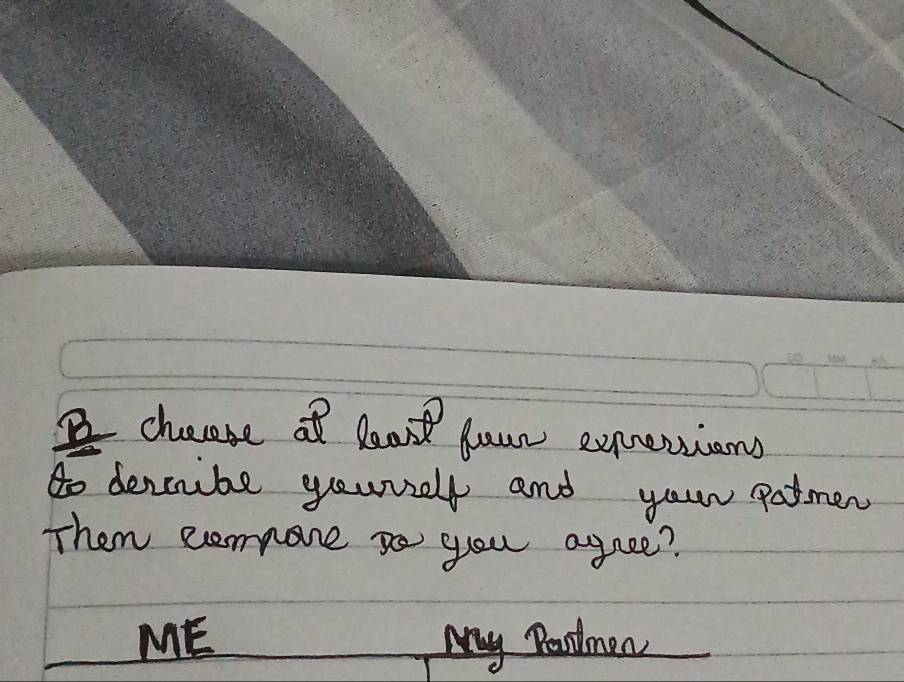 DD MM AA
B choose at least four expressions
to describe yourself and your Patner
Then compare Do you agree?
ME My Partner